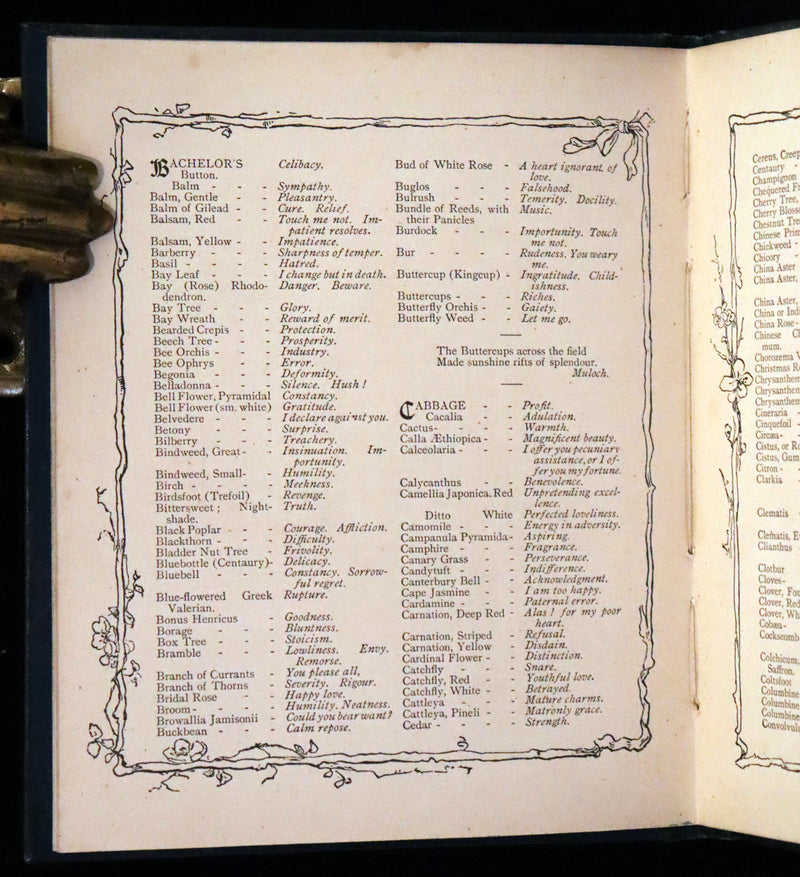 BACHELOR'S Celibacy.
Button.
Balm - - - Sympathy.
Balm, Gentle - - Pleasantry.
Balm of Gilead - - Cure. Relief.
Balsam, Red - - Touch me not. Im-
patient resolves.
Balsam, Yellow - - Impatience.
Barberry - - - Sharpness of temper.
Basil - - - - Hatred.
Bay Leaf - - - I change but in death.
Bay (Rose) Rhodo- Danger. Beware.
dendron.
Bay Tree - - - Glory.
Bay Wreath - - Reward of merit.
Bearded Crepis - - Protection.
Beech Tree - - - Prosperity.
Bee Orchis - - - Industry.
Bee Ophrys - - Error.
Begonia - - - Deformity.
Belladonna - - - Silence. Hush!
Bell Flower, Pyramidal Constancy.
Bell Flower (sm. white) Gratitude.
Belvedere - - - I declare against you.
Betony - - - Surprise.
Bilberry - - - Treachery.
Bindweed, Great - - Insinuation. Im-
portunity.
Bindweed, Small - - Humility.
Birch - - - - Meekness.
Birdsfoot (Trefoil) - Revenge.
Bittersweet; Night- Truth.
shade.
Black Poplar - - - Courage. Affliction.
Blackthorn - - - Difficulty.
Bladder Nut Tree - Frivolity.
Bluebottle (Centaury) - Delicacy.
Bluebell - - - Constancy. Sorrow-
ful regret.
Blue-flowered Greek Rupture.
Valerian.
Bonus Henricus - Goodness.
Borage - - - Bluntness.
Box Tree - - - Stoicism.
Bramble - - - Lowliness. Envy.
Remorse.
Branch of Currants - You please all,
Branch of Thorns - Severity. Rigour.
Bridal Rose - - Happy love.
Broom - - - - Humility. Neatness.
Browallia Jamisonii - Could you bear want?
Buckbean - - - Calm repose.
Bud of White Rose - A heart ignorant of
love.
Buglos - - - Falsehood.
Bulrush - - - Temerity. Docility.
Bundle of Reeds, with Music.
their Panicles
Burdock - - - Importunity. Touch
me not.
Bur - - - - Rudeness. You weary
me.
Buttercup (Kingcup) - Ingratitude. Child-
ishness.
Buttercups - - - Riches.
Butterfly Orchis - - Gaiety.
Butterfly Weed - - Let me go.
The Buttercups across the field
Made sunshine rifts of splendour.
Muloch.
CABBAGE - - Profit.
Cacalia - - Adulation.
Cactus - - - Warmth.
Calla Æthiopica - - Magnificent beauty.
Calceolaria - - - I offer you pecuniary
assistance, or I of-
fer you my fortune.
Calycanthus - - Benevolence.
Camellia Japonica, Red Unpretending excel-
lence.
Ditto White Perfected loveliness.
Camomile - - - Energy in adversity.
Campanula Pyramida - Aspiring.
Camphire - - - Fragrance.
Canary Grass - - Perseverance.
Candytuft - - - Indifference.
Canterbury Bell - - Acknowledgment.
Cape Jasmine - - I am too happy.
Cardamine - - - Paternal error.
Carnation, Deep Red - Alas! for my poor
heart.
Carnation, Striped - Refusal.
Carnation, Yellow - Disdain.
Cardinal Flower - - Distinction.
Catchfly - - - Snare.
Catchfly, Red - - Youthful love.
Catchfly, White - - Betrayed.
Cattleya - - - Mature charms.
Cattleya, Pineli - - Matronly grace.
Cedar - - - - Strength.
Cereus, Creep
Centaury -
Champignon
Chequered Fr
Cherry Tree,
Cherry Blosso
Chestnut Tre
Chinese Prim
Chickweed -
Chicory -
China Aster
China Aster,
China Aster,
China or Indi
China Rose -
Chinese C
mum.
Chorozema V
Christmas R
Chrysanthem
Chrysanthem
Chrysanthem
Cineraria
Cinquefoil -
Circæa -
Cistus, or Ro
Cistus, Gum
Citron -
Clarkia
Clematis
Clematis, E
Clianthus
Clotbur
Cloves -
Clover, Fou
Clover, Red
Clover, Wh
Cobæa -
Cockscomb
Colchicum,
Saffron.
Coltsfoot
Columbine
Columbine
Columbine
Convolvulu